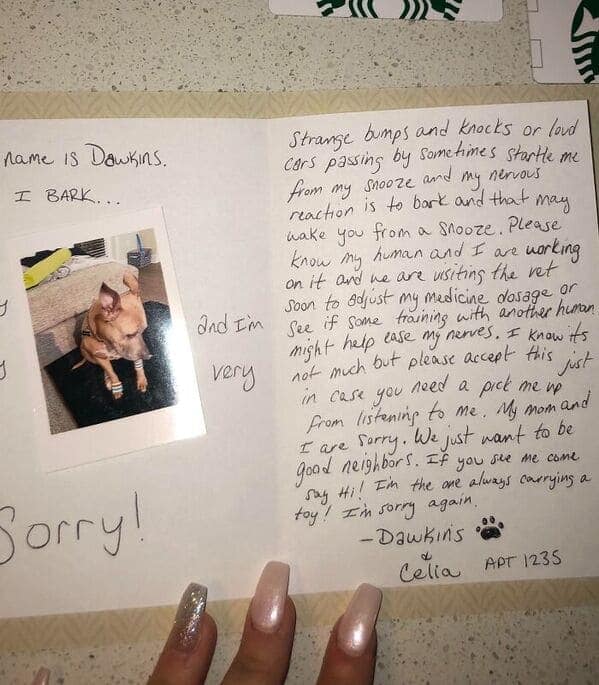 name is Dawkins.
I BARK...
and I'm
very
Sorry!
Strange bumps and knocks or loud
cars passing by sometimes startle me
from my snooze and my nervous
reaction is to bark and that may
wake you from a snooze. Please
know my human and I are working
on it and we are visiting the vet
soon to adjust my medicine dosage or
see if some training with another human
might help ease my nerves. I know its
not much but please accept this just
in case you need a pick me up
from listening to me. My mom and
I are sorry. We just want to be
good neighbors. If you see me come
say Hi! I'm the one always carrying a
toy! I'm sorry again.
- Dawkins
&
Celia APT 1235